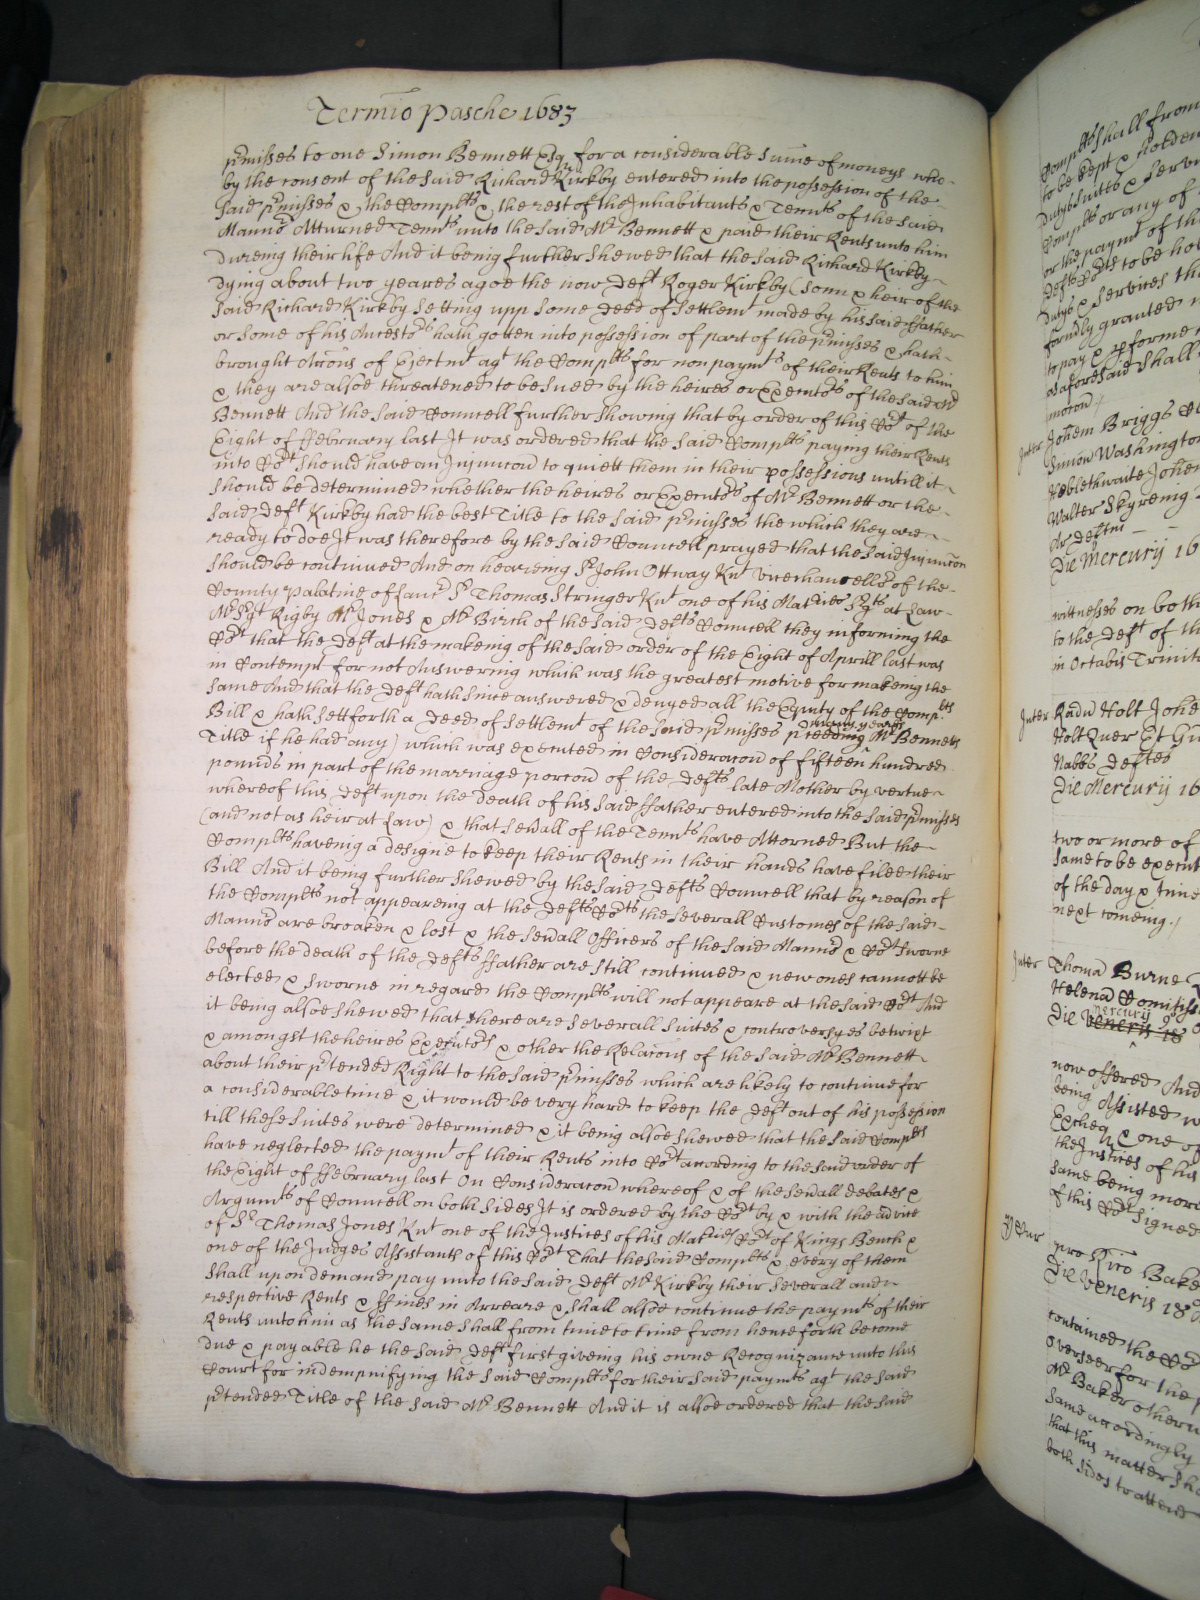 Termīo Pasche 1683
p̄misses to one Simon Bennett Esqr for a considerable Sum̄e of moneys who
by the consent of the said Richard Kirkby entered into the possession of the
said p̄misses & the Complts & the rest of the Inhabitants & Tennts of the said
Mannor Atturned Tennts unto the said Mr Bennett & paid their Rents unto him
dureing their life And it being further shewed that the said Richard Kirkby
dying about two yeares agoe the now Deft Roger Kirkby (Sonn & heir of the
said Richard Kirkby Setting upp some Deed of Settlemt made by his said ffather
or some of his Ancestrs hath gotten into possession of part of the p̄misses & hath
brought Ac̄cons of Ejectmt agt the Complts for non paymts of their Rents to him
& they are alsoe threatened to be sued by the heires or Executors of the said Mr
Bennett And the said Councell further showing that by order of this Cort of the
Eight of ffebruary last It was ordered that the said Complts paying their Rents
into Cort should have an Injuncc̄on to quiett them in their possessions untill it
should be determined whether the heires or Executors of Mr Bennett or the
said Deft Kirkby had the best Title to the said p̄misses the which they are
ready to doe It was therefore by the said Councell prayed that the said Injuncc̄on
should be continued And on heareing Sr John Ottway Knt Vicechancellor of the
County palatine of Lancr Sr Thomas Stringer Knt one of his Maties Sergts at Law
Mr Sergt Rigby Mr Jones & Mr Birch of the said Defts Councell they informing the
Cort that the Deft at the makeing of the said order of the Eight of Aprill last was
in Contempt for not Answering which was the greatest motive for makeing the
same And that the Deft hath since answered & denyed all the Equity of the Complts
Bill & hath sett forth a Deed of Settlemt of the said p̄misses p̄ceeding many yeares Mr Bennetts
Title (if he had any) which was executed in Considerac̄on of fifteen hundred
pounds in part of the marriage porc̄on of the Defts late Mother by vertue
whereof this Deft upon the death of his said ffather entered into the said p̄misses
(and not as heir at Law) & that sev̄all of the Tennts have Attorned But the
Complts haveing a designe to keep their Rents in their hands have filed their
Bill And it being further shewed by the said Defts Councell that by reason of
the Complts not appeareing at the Defts Corts the severall Customes of the said
Mannor are broaken & lost & the sev̄all Officers of the said Mannor & Cort sworne
before the death of the Defts ffather are still continued & new ones cannott be
elected & sworne in regard the Complts will not appeare at the said Cort And
it being alsoe shewed that there are severall suites & controversyes betwixt
& amongst the heires Executors & other the Relac̄ons of the said Mr Bennett
about their p̄tended Right to the said p̄misses which are likely to continue for
a considerable time & it would be very hard to keep the Deft out of his possession
till these suites were determined & it being alsoe shewed that the said Complts
have neglected the paymt of their Rents into Cort according to the said order of
the Eight of ffebruary last On Considerac̄on whereof & of the sev̄all debates &
Argumts of Councell on both sides It is ordered by the Cort by & with the advice
of Sr Thomas Jones Knt one of the Justices of his Maties Cort of Kings Bench &
one of the Judges Assistants of this Cort That the said Complts & every of them
shall upon demand pay unto the said Deft Mr Kirkby their severall and
respective Rents & ffines in Arreare & shall alsoe continue the paymts of their
Rents unto him as the same shall from time to time from henceforth become
due & payable he the said Deft first giveing his owne Recognizance unto this
Court for indempnifying the said Complts for their said paymts agt the said
p̄tended Title of the said Mr Bennett And it is alsoe ordered that the said
Complts shall from
to be kept & holden
dutys Suits & Servi
Complts or any of
or the paymt of th
to be ho
dutys & services th
formly granted
to pay & p̄forme
as aforesaid shall
moc̄on
Inter Johem Briggs
Simon Washington
Heblethwaite Johen
Walter Skyreing
Ar Deftes
Die Mercurij 16
wittnesses on both
to the Deft of th
in Octabis Trinit
Inter Radm Holt Johe
Holt Quer Et
Nabbs Deftes
Die Mercurij 16
two or more of
same to be execut
of the day & time
next comeing
Inter Thoma Burne
Helena Comitiss
Mercurij
Die Veneris 18
now offered And
being Assisted
Excheqr & one of
the Justices of his
same being mov
of this Cort Signed
pro Rico Bake
Die Veneris 18o
contained the Cort
Overseer for the
Mr Baker otherw
same accordingly
that this matter sh
both sides to attend